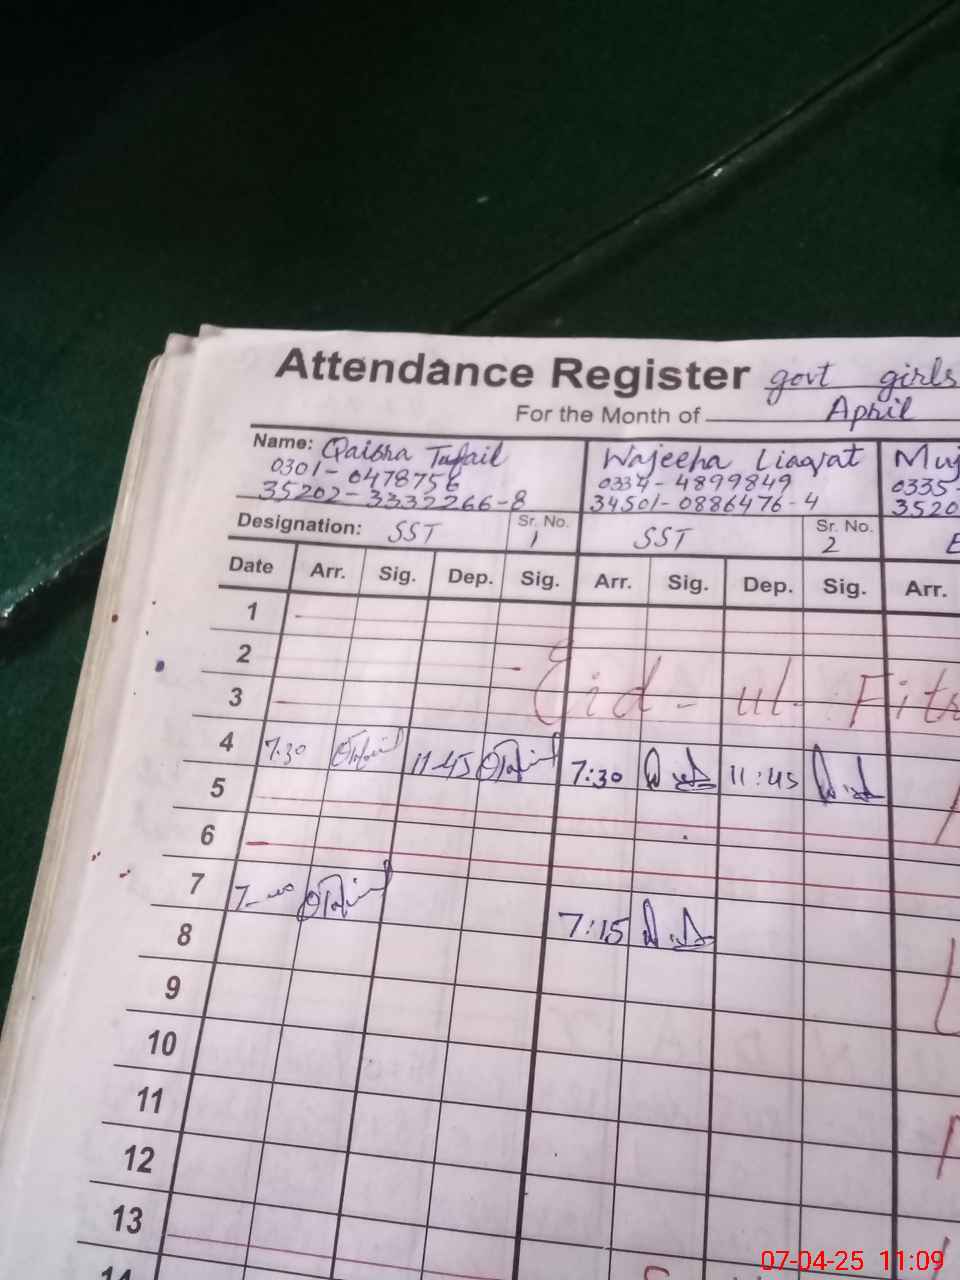 Attendance Register govt girls
For the Month of April
Name: Qaisra Tufail Wajeeha Liaqat Muj
0301-0478756 0334-4899849 0335-
35202-3332266-8 34501-0886476-4 3520
Designation: SST Sr. No. 1 SST Sr. No. 2 E
Date Arr. Sig. Dep. Sig. Arr. Sig. Dep. Sig. Arr.
1
2
3 Eid-ul-Fitr
4 7:30 11-45 7:30 11:45
5
6
7 7:15
8
9
10
11
12
13
14
07-04-25 11:09